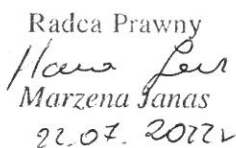 Radca Prawny
Marzena Janas
22.07.2022r